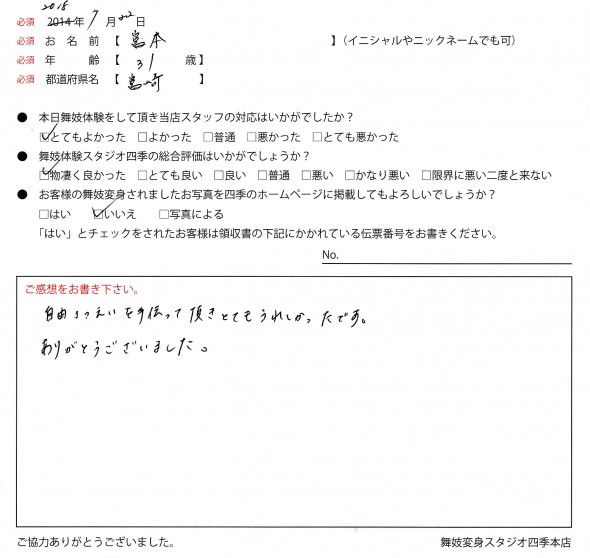 2015
必須 2014年 7月 22日
必須 お 名 前 【 宮本 】(イニシャルやニックネームでも可)
必須 年 齢 【 31 歳】
必須 都道府県名 【 宮崎 】
● 本日舞妓体験をして頂き当店スタッフの対応はいかがでしたか?
☑とてもよかった □よかった □普通 □悪かった □とても悪かった
● 舞妓体験スタジオ四季の総合評価はいかがでしょうか?
☑物凄く良かった □とても良い □良い □普通 □悪い □かなり悪い □限界に悪い二度と来ない
● お客様の舞妓変身されましたお写真を四季のホームページに掲載してもよろしいでしょうか?
□はい ☑いいえ □写真による
「はい」とチェックをされたお客様は領収書の下記にかかれている伝票番号をお書きください。
No.
ご感想をお書き下さい。
自由さつえいを手伝って頂きとてもうれしかったです。
ありがとうございました。
ご協力ありがとうございました。 舞妓変身スタジオ四季本店